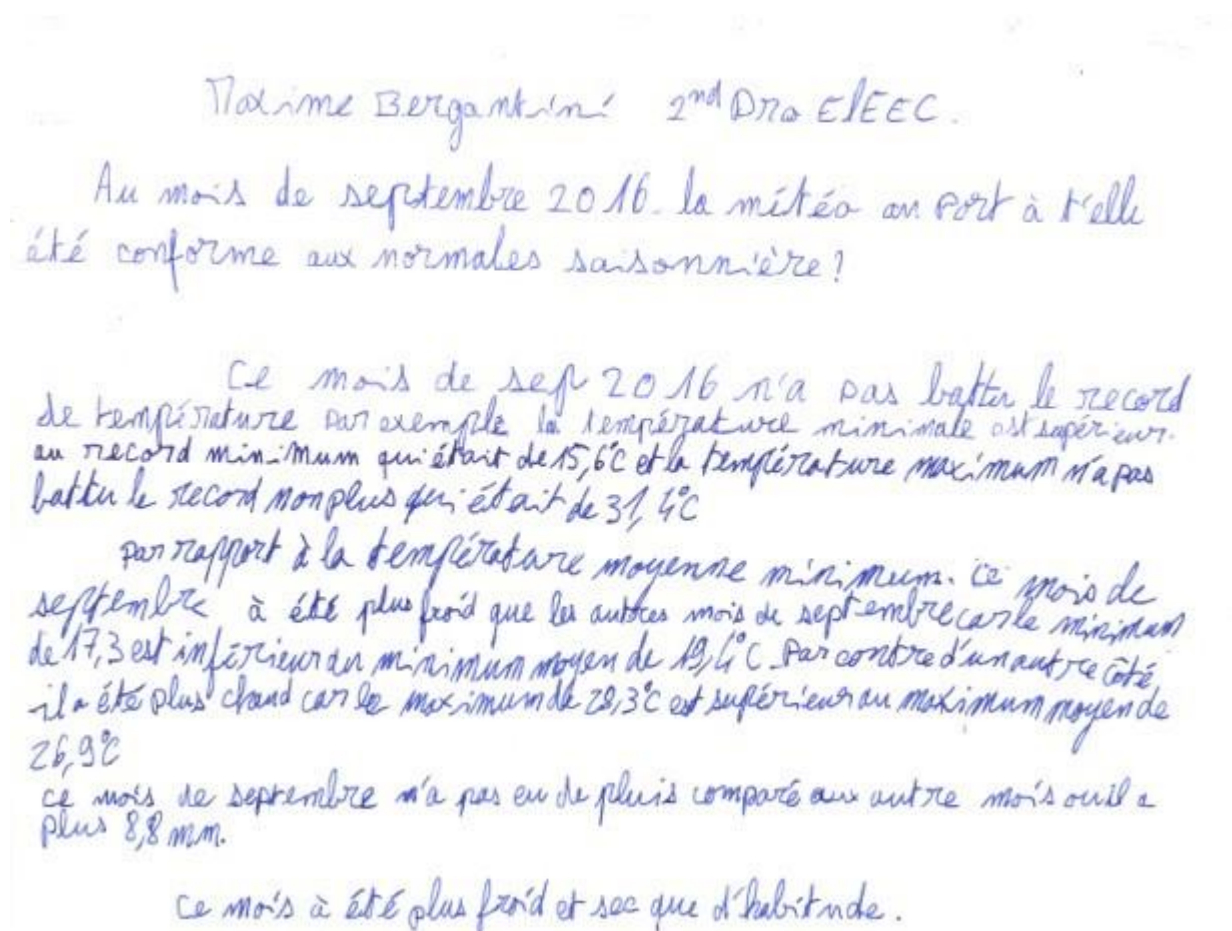 Maxime Bergantini 2nd Pro ElEEC.
Au mois de septembre 2016. la météo au Port à t'elle
été conforme aux normales saisonnière?
Ce mois de sep 2016 n'a pas battu le record
de température par exemple la température minimale est supérieur.
au record minimum qui était de 15,6°C et la température maximum n'a pas
battu le record non plus qui était de 31,4°C
par rapport à la température moyenne minimum. ce mois de
septembre à été plus froid que les autres mois de septembre car le minimum
de 17,3 est inférieur au minimum moyen de 19,4°C. Par contre d'un autre côté
il a été plus chaud car le maximum de 28,3°C est supérieur au maximum moyen de
26,9°C
ce mois de septembre n'a pas eu de pluis comparé aux autre mois ou il a
plus 8,8 mm.
Ce mois à été plus froid et sec que d'habitude.